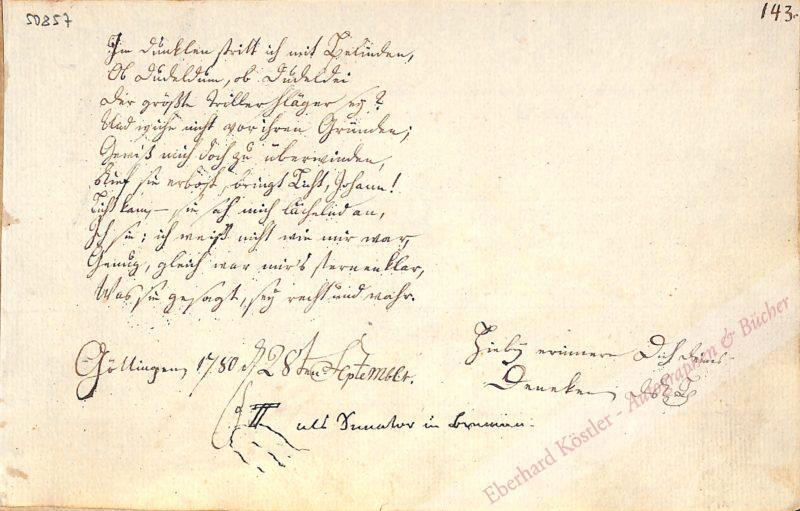 50857
143.
Im Dunklen stritt ich mit Belinden,
Ob Dudeldum, ob Dudeldei
Der größte Trillerschläger sey?
Und wiche nicht vor ihren Gründen;
Gewiß mich doch zu überwinden,
Rief sie erbost, bringt Licht, Johann!
Licht kam, – sie sah mich lächelnd an,
Ich sie; ich weiß nicht wie mir war,
Genug, gleich war mir's sternenklar,
Was sie gesagt, sey recht und wahr.
Göttingen, 1780 d 28ten September.
Hiebey erinnere Dich
Deneken
als Senator in Bremen.
Eberhard Köstler - Autographen & Bücher